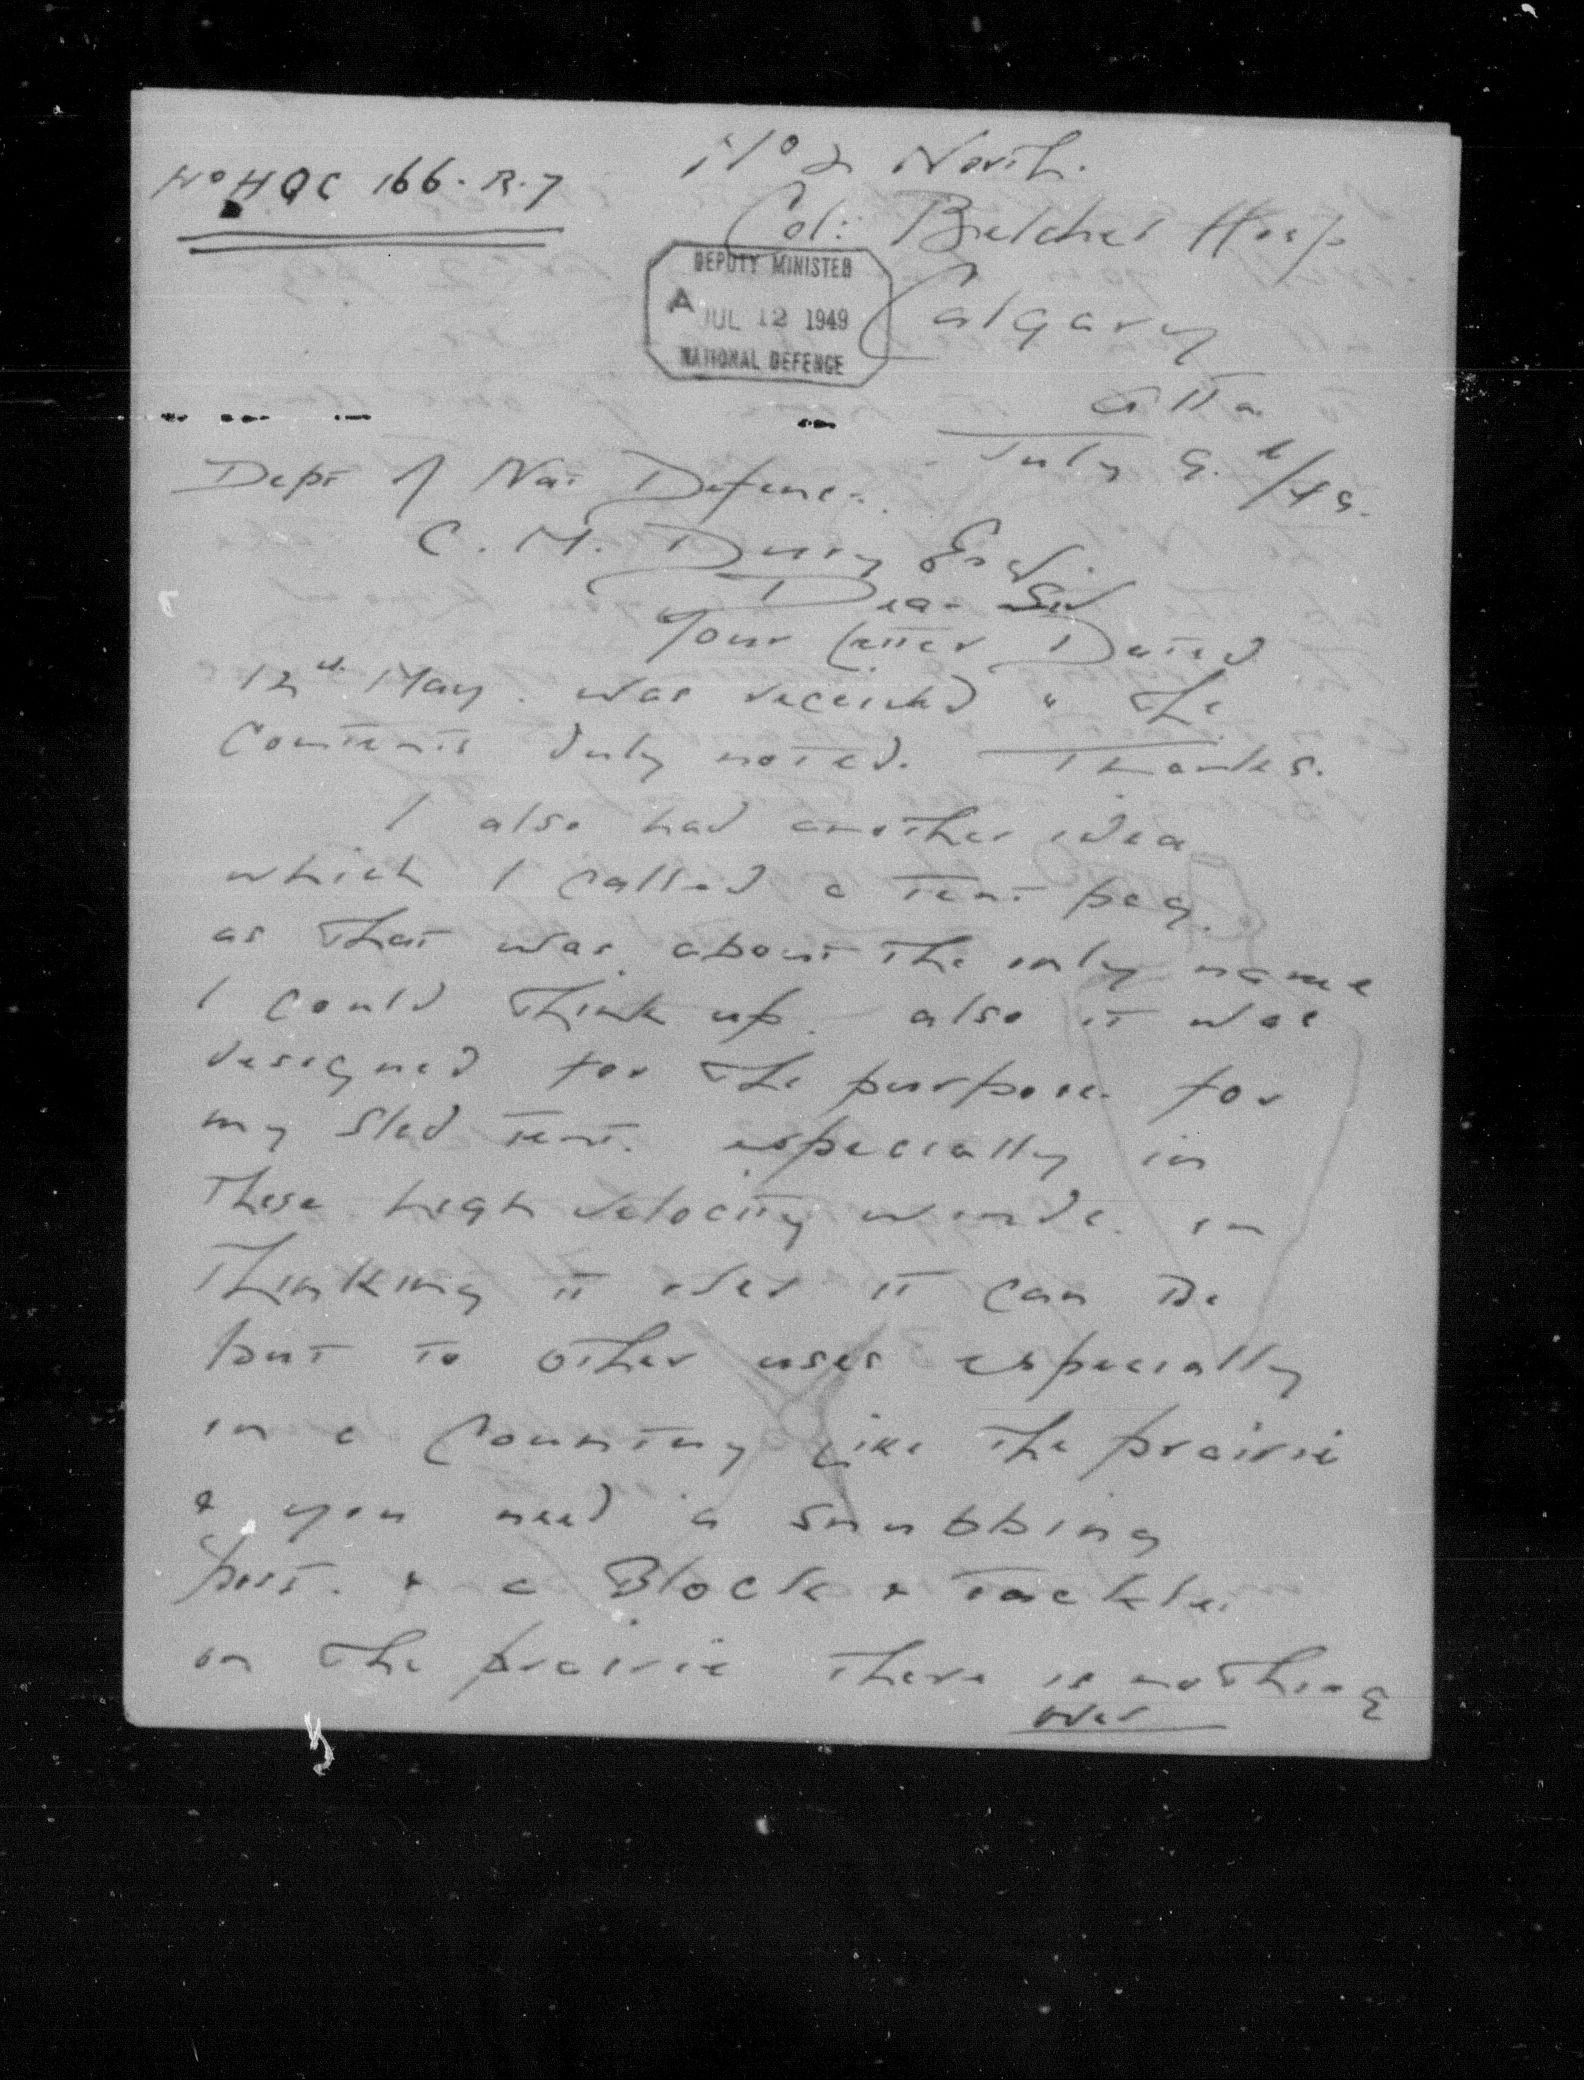 No HQC 166-R-7
No 2 North.
Col: Belcher Hosp
Calgary
Alta
July 9th/49.
DEPUTY MINISTER
A JUL 12 1949
NATIONAL DEFENCE
Dept of Nat Defence.
C. M. Drury Esq.
Dear Sir
Your Letter Dated
12th May. was received " the
contents duly noted. Thanks.
I also had another idea
which I called a Tent peg.
as that was about the only name
I could think up. also it was
designed for the purpose for
my Sled tent. especially in
these high velocity winds. in
Thinking it over it can be
put to other uses especially
in a Country Like the prairie
& you need a snubbing
post. & a Block & Tackle.
on the prairie there is nothing
over